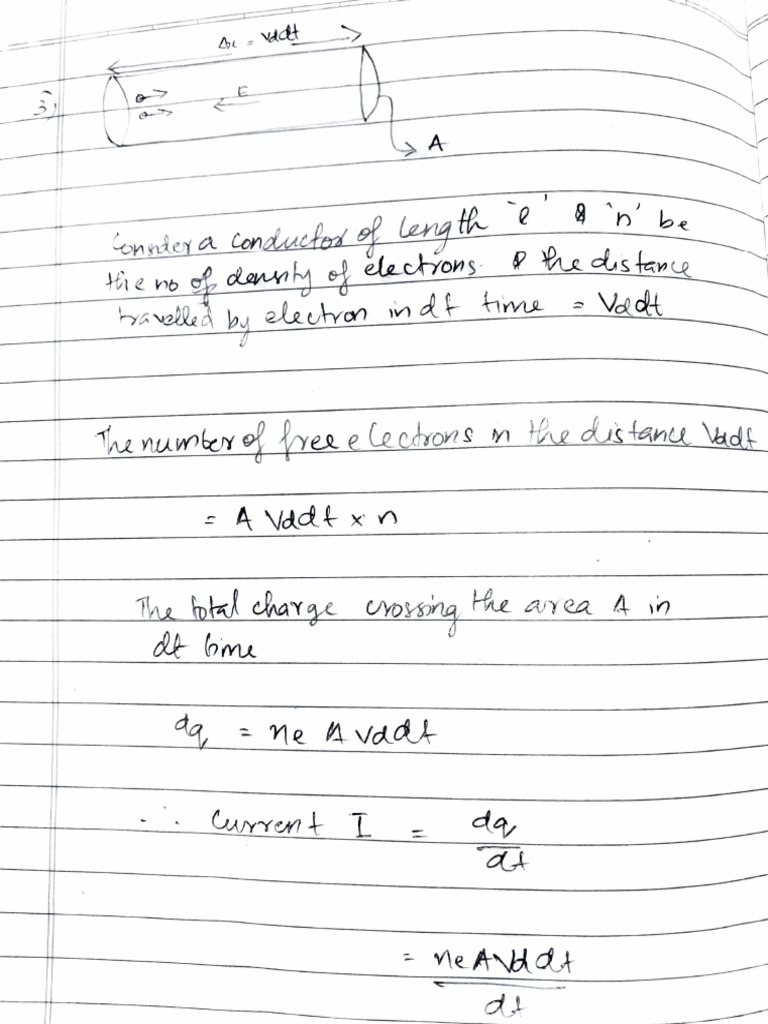 Δx = Vddt
3)
E
A
Consider a conductor of length 'l' & 'n' be
the no of density of electrons. & the distance
travelled by electron in dt time = Vddt
The number of free electrons in the distance Vddt
= A Vddt × n
The total charge crossing the area A in
dt time
dq = ne A Vddt
∴ Current I = dq/dt
= neAVddt/dt